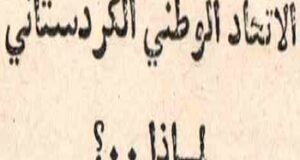 الاتحاد الوطني الكردستاني
لماذا ..؟